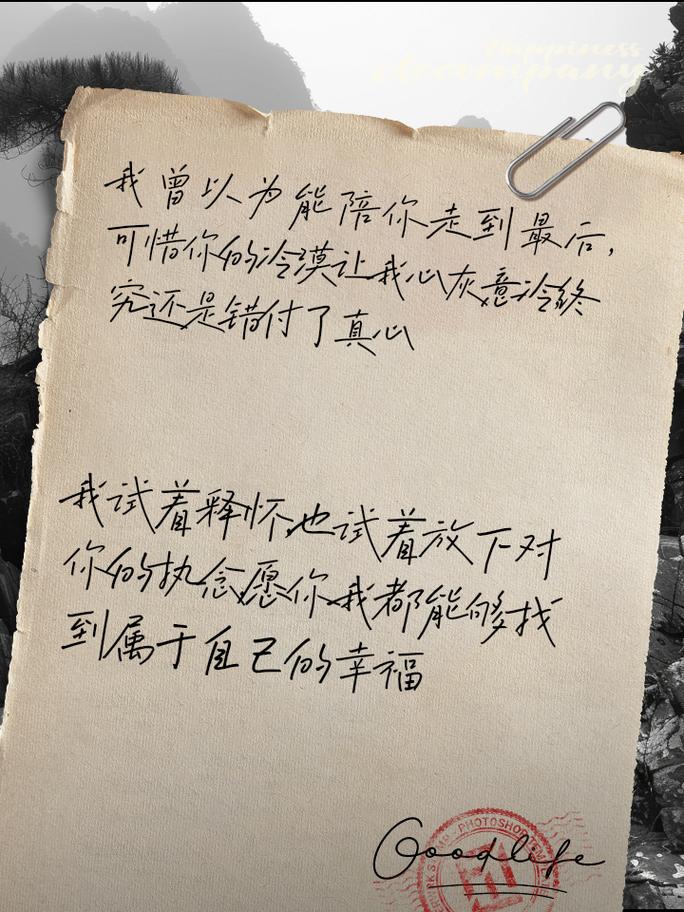 Happiness
accompany
我曾以为能陪你走到最后,
可惜你的冷漠让我心灰意冷终
究还是错付了真心
我试着释怀也试着放下对
你的执念愿你我都能够找
到属于自己的幸福
PHOTOSHOP
Goodlife